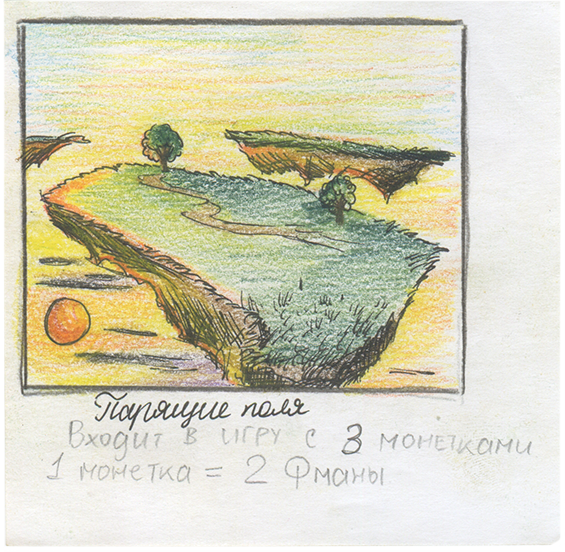 Парящие поля
Входит в игру с 3 монетками
1 монетка = 2 Фманы